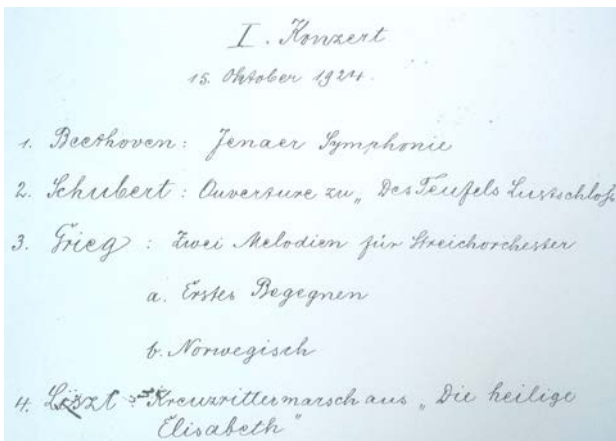 I. Konzert
15. Oktober 1924.
1. Beethoven: Jenaer Symphonie
2. Schubert: Ouverture zu „Des Teufels Lustschloß
3. Grieg: Zwei Melodien für Streichorchester
a. Erstes Begegnen
b. Norwegisch
4. Liszt: Kreuzrittermarsch aus „Die heilige
Elisabeth"